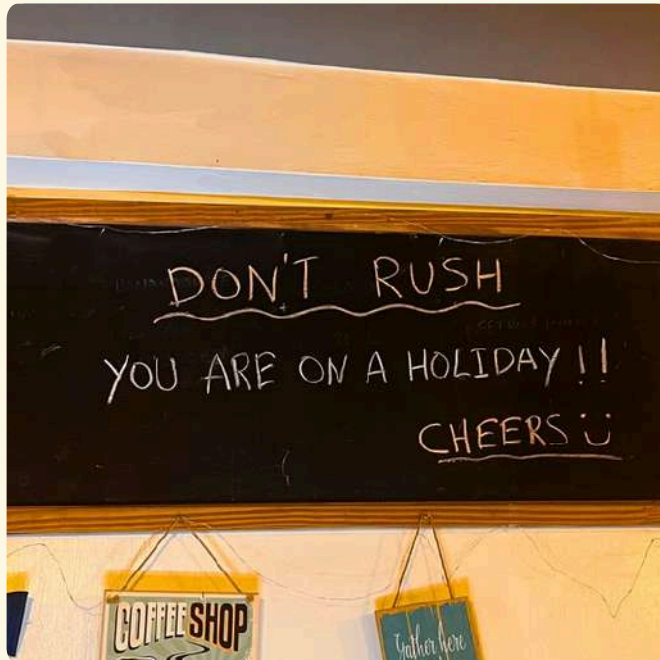 DON'T RUSH
YOU ARE ON A HOLIDAY!!
CHEERS
COFFEE SHOP
Gather here